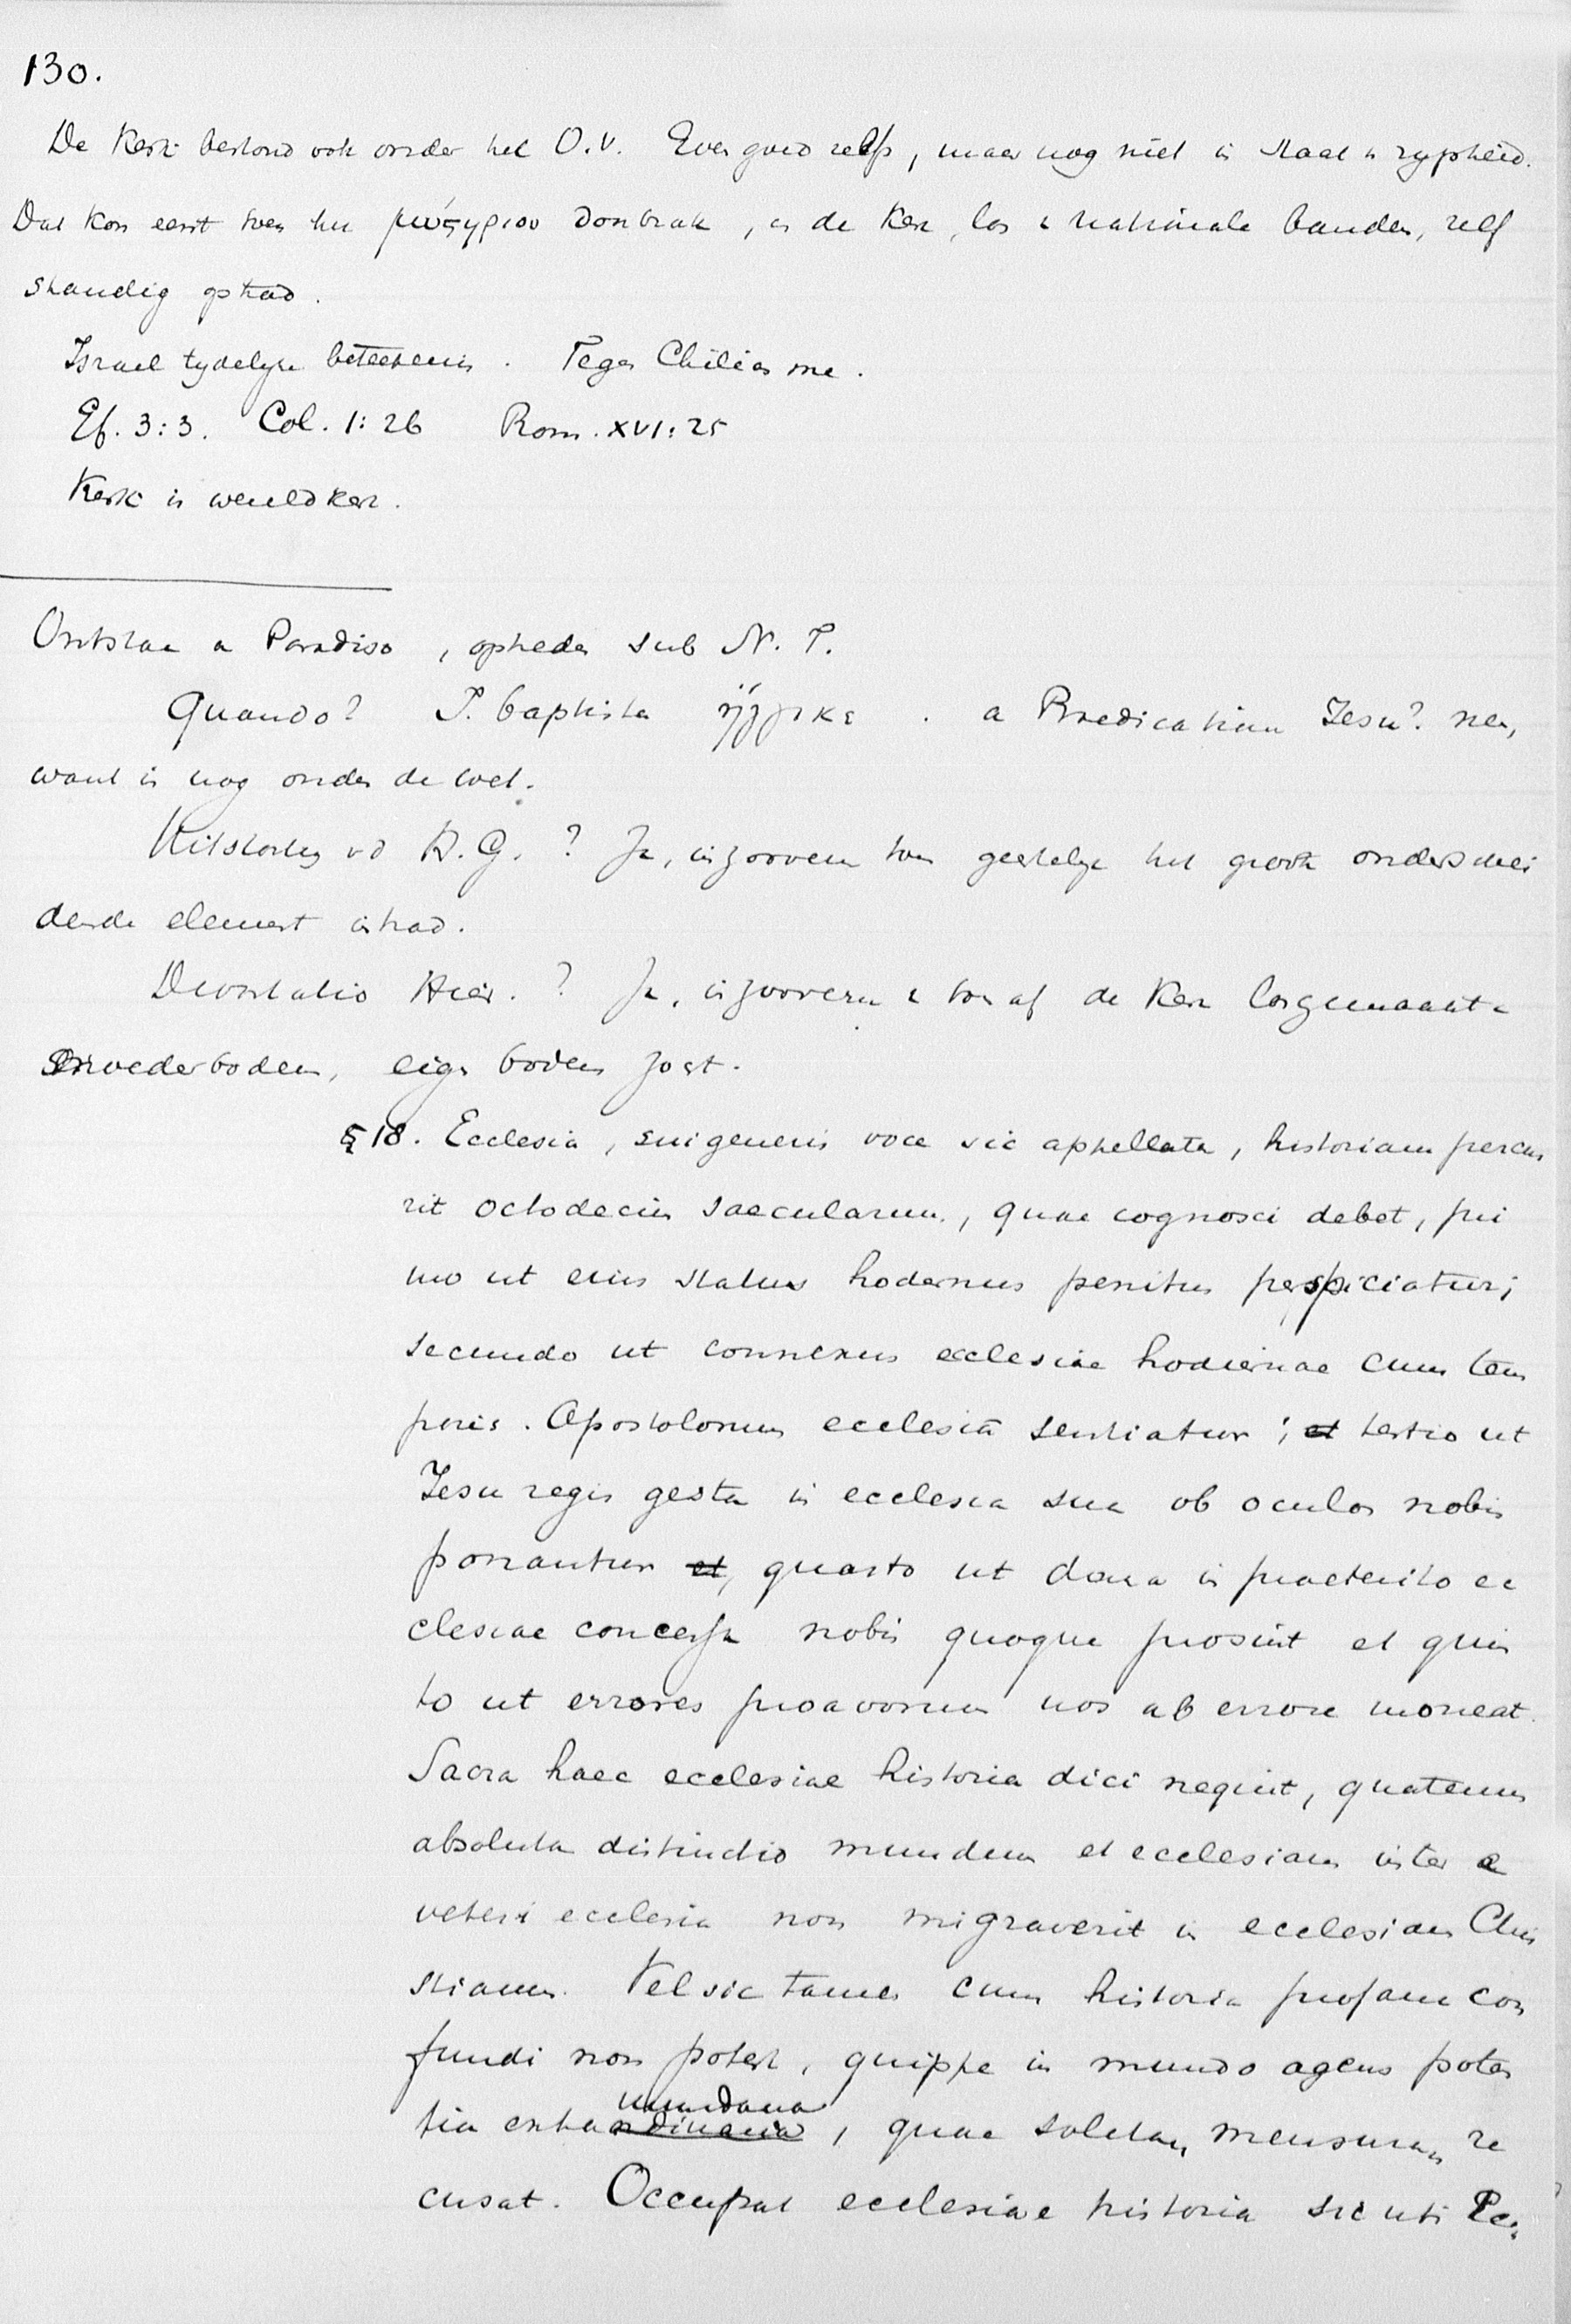 130.
De Kerk bestond ook onder het O.V. Even goed zelfs, maar nog niet in staat v rypheid.
Dat kon eerst toen het μυςτηριον doorbrak, en de Kerk, los v nationale banden, zelf
standig optrad.
Israel tydelyke beteekenis. Tegen Chiliasme.
Ef. 3:3. Col. 1:26 Rom. XVI:25
Kerk is wereldkerk.
Ontstaan a Paradiso, optreden sub N.T.
Quando? J. baptista ἤγγικε. a Praedicatione Jesu? neen,
want is nog onder de wet.
Uitstorting vd H.G.? Ja, inzooverre toen geestelyk het groote onderschei
dende element intrad.
Devastatio Hier.? Ja, inzooverre v toen af de Kerk losgemaakt v
moederbodem, eigen bodem zoekt.
§ 18. Ecclesia, sui generis voce sic appellata, historiam percur
rit octodecim saecularum, quae cognosci debet, pri
mo ut eius status hodiernus penitus perspiciatur;
secundo ut connexus ecclesiae hodiernae cum tem
poris Apostolorum ecclesiâ sentiatur; et tertio ut
Jesu regis gesta in ecclesia sua ob oculos nobis
ponantur et, quarto ut dona in praeterito ec
clesiae concessa nobis quoque prosint et quin
to ut errores proavorum nos ab errore moneat.
Sacra haec ecclesiae historia dici nequit, quatenus
absoluta distinctio mundum et ecclesiam inter e
veteri ecclesia non migraverit in ecclesiam Chri
stianam. Vel sic tamen cum historia profana con
fundi non potest, quippe in mundo agens poten
mundana
tia extraordinaria, quae solitam mensuram re
cusat. Occupat ecclesiae historia sicuti